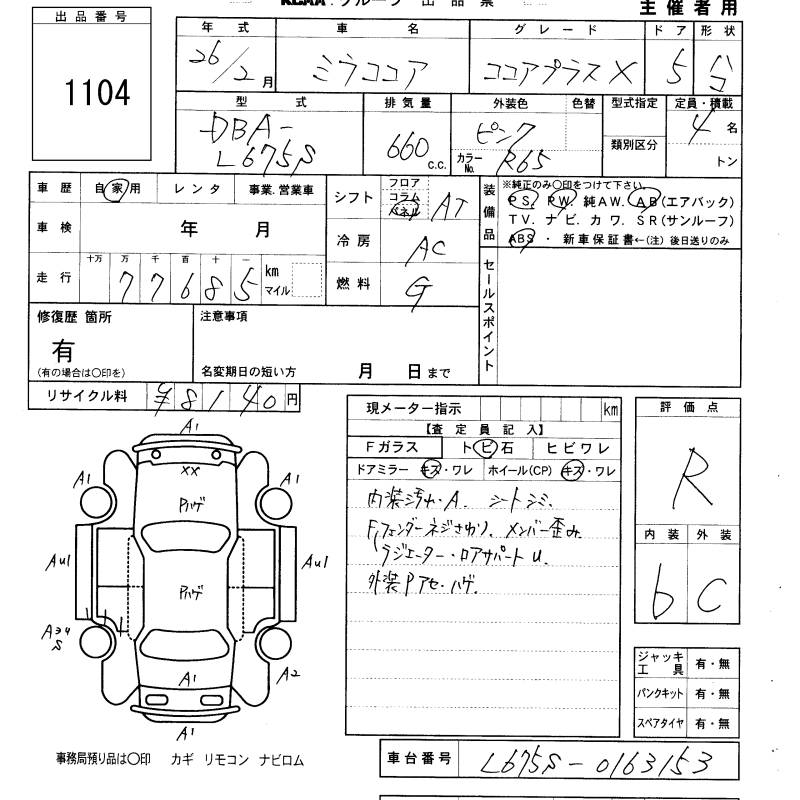 KCAA グループ 出品票
主催者用
出品番号
1104
年式 車名 グレード ドア 形状
26/2月 ミラココア ココアプラスX 5 ハコ
型式 排気量 外装色 色替 型式指定 定員・積載
DBA-
L675S 660 c.c. ピンク カラーNo. R65 類別区分 4名
トン
車歴 自家用 レンタ 事業.営業車
車検 年 月
走行 十万 万 千 百 十 一
77685 km マイル
シフト フロア コラム パネル AT
冷房 AC
燃料 G
装備品 ※純正のみ○印をつけて下さい。
PS. PW. 純AW. AB(エアバック)
TV. ナビ. カワ. SR(サンルーフ)
ABS ・ 新車保証書←(注) 後日送りのみ
セールスポイント
修復歴 箇所
有
(有の場合は○印を)
注意事項
名変期日の短い方 月 日まで
リサイクル料 ¥8140円
現メーター指示 km
【査定員記入】
Fガラス トビ石 ヒビワレ
ドアミラー キズ・ワレ ホイール(CP) キズ・ワレ
内装汚れ・A. シートシミ.
Fフェンダーネジさわり. メンバー歪み.
ラジエーター・ロアサポートU.
外装Pアセ・ハゲ.
評価点
R
内装 外装
6 C
ジャッキ工具 有・無
パンクキット 有・無
スペアタイヤ 有・無
A1
XX
A1 A1
Pハゲ
AU1 AU1
Pハゲ
A34
S
A2
A1
A1
事務局預り品は○印 カギ リモコン ナビロム
車台番号 L675S-0163153